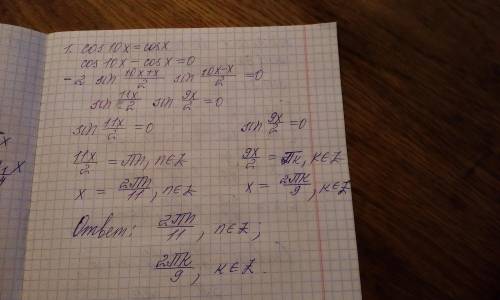 1. cos 10x = cos x
cos 10x - cos x = 0
-2 sin (10x+x)/2 sin (10x-x)/2 = 0
sin 11x/2 sin 9x/2 = 0
sin 11x/2 = 0 sin 9x/2 = 0
11x/2 = πn, n∈Z 9x/2 = πк, к∈Z
x = 2πn/11, n∈Z x = 2πк/9, к∈Z
Ответ: 2πn/11, n∈Z;
2πк/9, к∈Z.